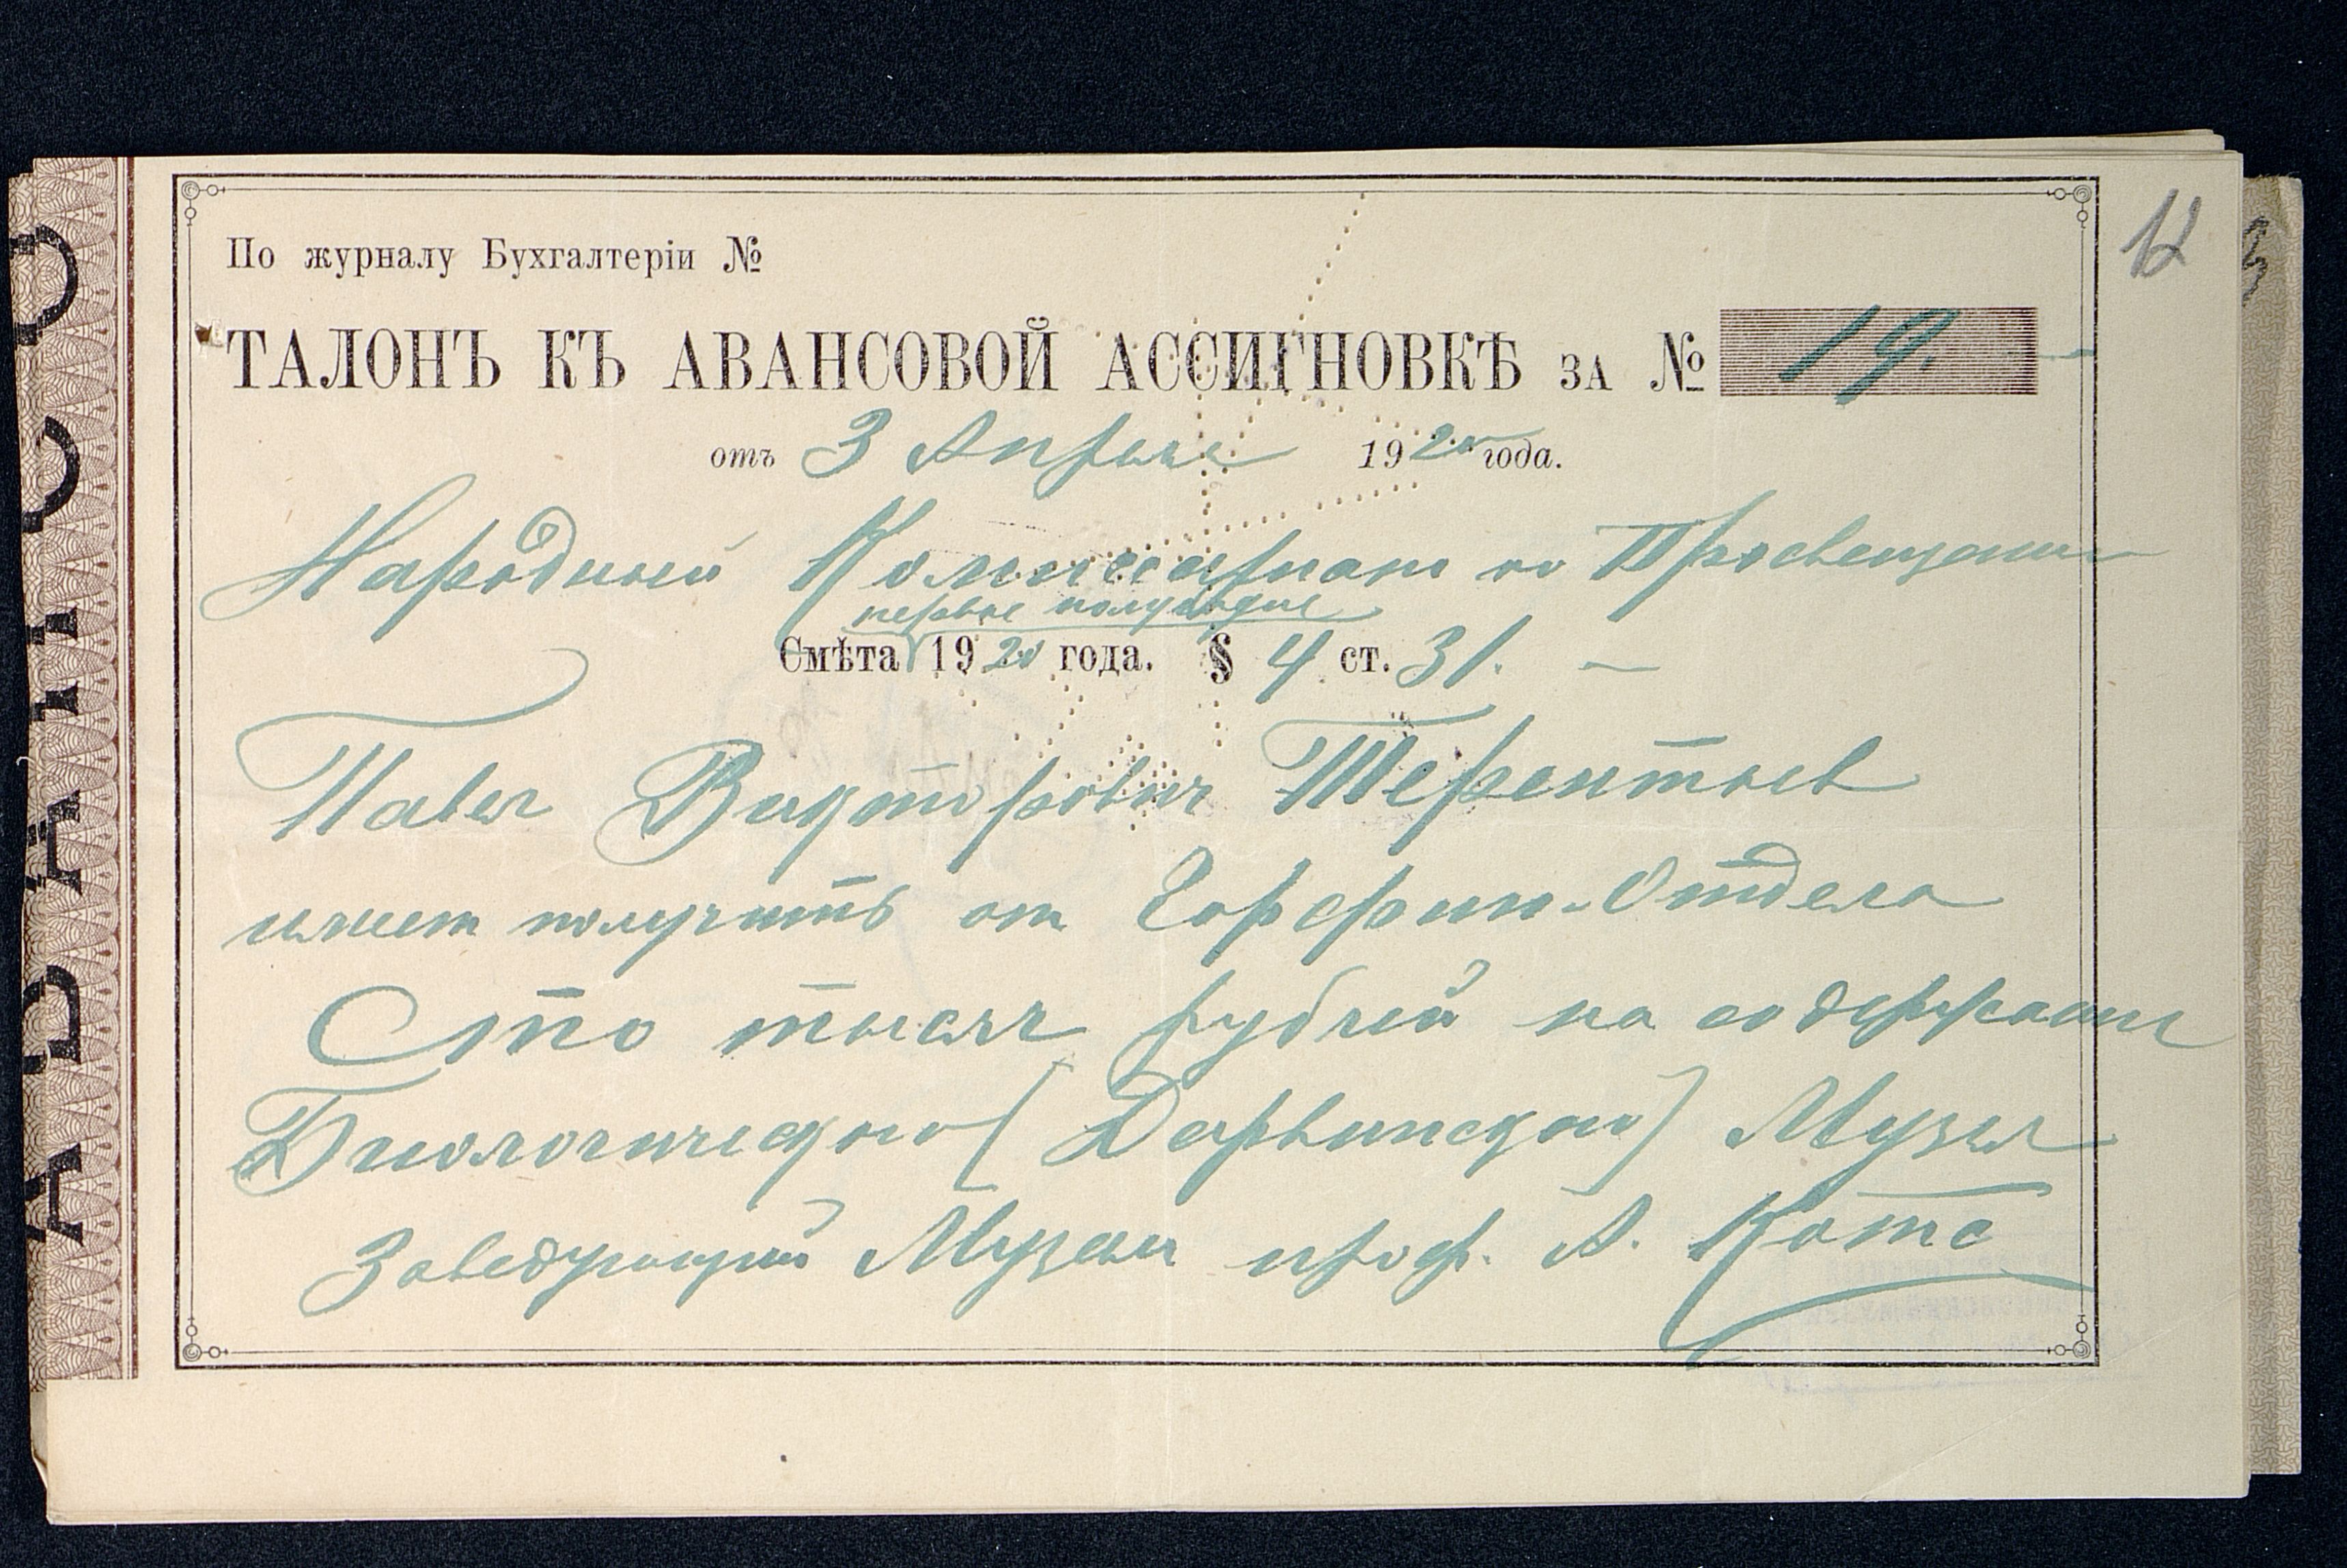 По журналу Бухгалтеріи №
12
ТАЛОНЪ КЪ АВАНСОВОЙ АССИГНОВКѢ ЗА № 19.
отъ 3 Апреля 1920 года.
Народный Комиссариат по Просвещению
первое полугодие
Смѣта 1920 года. § 4 ст. 31. —
Павел Викторович Терентьев
имеет получить от Горфин-Отдела
Сто тысяч рублей на содержание
Биологического (Дарвинского) Музея
Заведующий Музеем проф. А. Котс